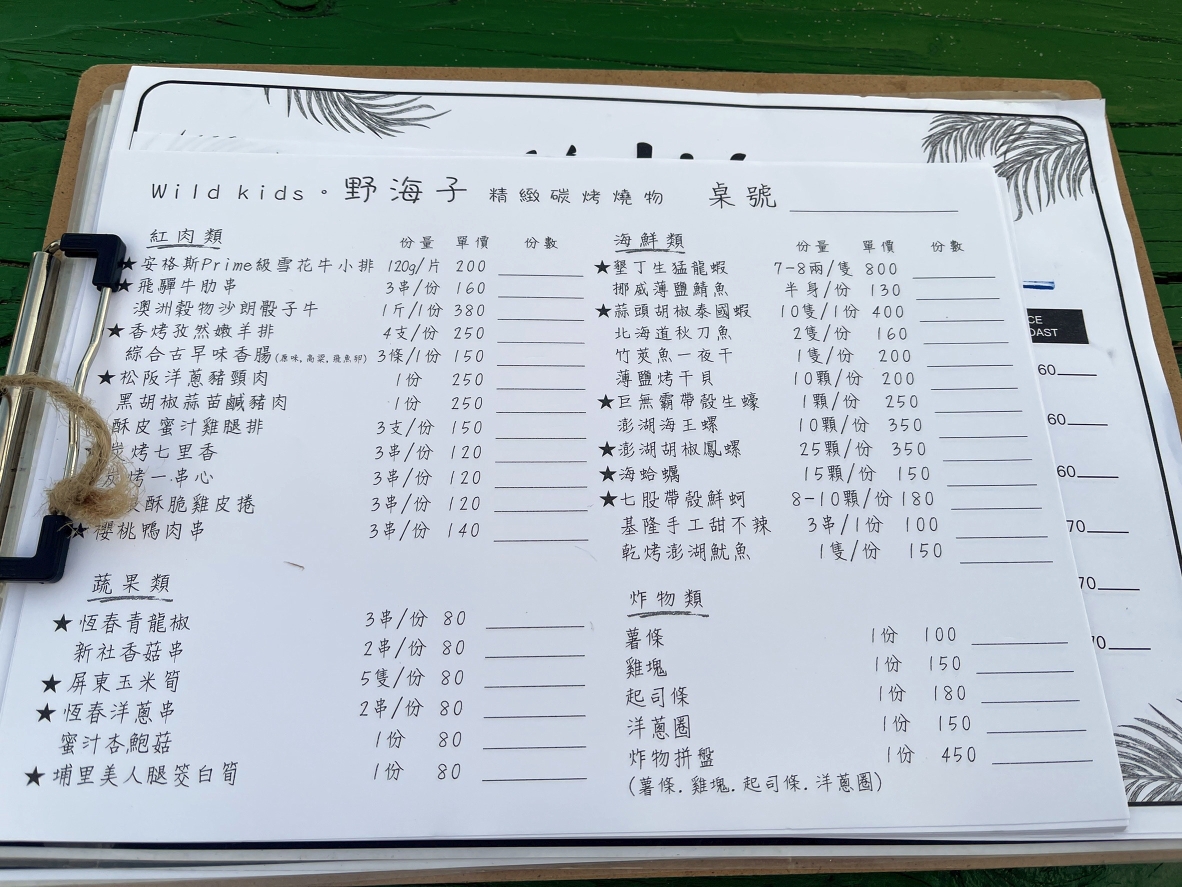 Wild kids。野海子 精緻碳烤燒物 桌號
紅肉類 份量 單價 份數
★安格斯Prime級雪花牛小排 120g/片 200
★飛驒牛肋串 3串/份 160
澳洲穀物沙朗骰子牛 1斤/1份 380
★香烤孜然嫩羊排 4支/份 250
綜合古早味香腸(原味,高粱,飛魚卵) 3條/1份 150
★松阪洋蔥豬頸肉 1份 250
黑胡椒蒜苗鹹豬肉 1份 250
酥皮蜜汁雞腿排 3支/份 150
烤七里香 3串/份 120
烤一串心 3串/份 120
酥脆雞皮捲 3串/份 120
★櫻桃鴨肉串 3串/份 140
蔬果類
★恆春青龍椒 3串/份 80
新社香菇串 2串/份 80
★屏東玉米筍 5隻/份 80
★恆春洋蔥串 2串/份 80
蜜汁杏鮑菇 1份 80
★埔里美人腿筊白筍 1份 80
海鮮類 份量 單價 份數
★墾丁生猛龍蝦 7-8兩/隻 800
挪威薄鹽鯖魚 半身/份 130
★蒜頭胡椒泰國蝦 10隻/1份 400
北海道秋刀魚 2隻/份 160
竹莢魚一夜干 1隻/份 200
薄鹽烤干貝 10顆/份 200
★巨無霸帶殼生蠔 1顆/份 250
澎湖海王螺 10顆/份 350
★澎湖胡椒鳳螺 25顆/份 350
★海蛤蠣 15顆/份 150
★七股帶殼鮮蚵 8-10顆/份 180
基隆手工甜不辣 3串/1份 100
乾烤澎湖魷魚 1隻/份 150
炸物類
薯條 1份 100
雞塊 1份 150
起司條 1份 180
洋蔥圈 1份 150
炸物拼盤 1份 450
(薯條.雞塊.起司條.洋蔥圈)
60
60
60
70
70
70